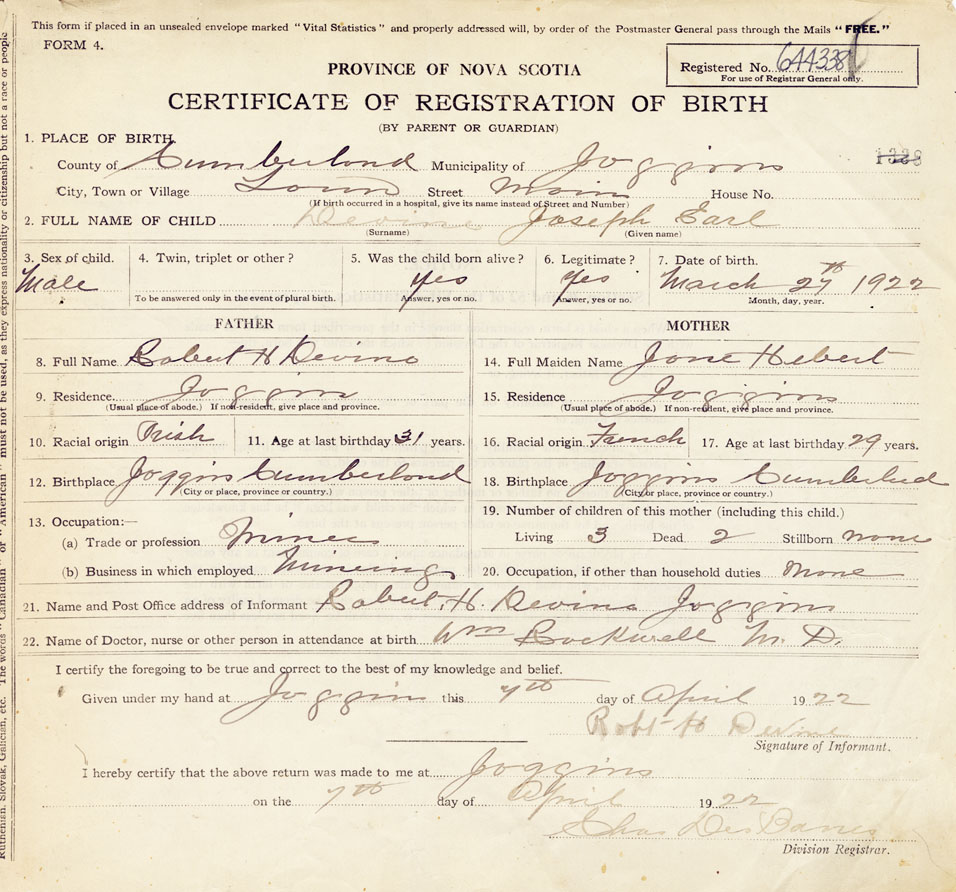 This form if placed in an unsealed envelope marked "Vital Statistics" and properly addressed will, by order of the Postmaster General pass through the Mails "FREE."
FORM 4.
Registered No. 644338
For use of Registrar General only.
PROVINCE OF NOVA SCOTIA
CERTIFICATE OF REGISTRATION OF BIRTH
(BY PARENT OR GUARDIAN)
1328
1. PLACE OF BIRTH
County of Cumberland Municipality of Joggins
City, Town or Village Town Street Main House No.
(If birth occurred in a hospital, give its name instead of Street and Number)
2. FULL NAME OF CHILD Devine Joseph Earl
(Surname) (Given name)
3. Sex of child. Male
4. Twin, triplet or other?
To be answered only in the event of plural birth.
5. Was the child born alive? Yes
Answer, yes or no.
6. Legitimate? Yes
Answer, yes or no.
7. Date of birth. March 27th 1922
Month, day, year.
FATHER
8. Full Name Robert H Devine
9. Residence Joggins
(Usual place of abode.) If non-resident, give place and province.
10. Racial origin Irish 11. Age at last birthday 31 years.
12. Birthplace Joggins Cumberland
(City or place, province or country.)
13. Occupation:—
(a) Trade or profession Miner
(b) Business in which employed Mineing
MOTHER
14. Full Maiden Name Jane Hebert
15. Residence Joggins
(Usual place of abode.) If non-resident, give place and province.
16. Racial origin French 17. Age at last birthday 29 years.
18. Birthplace Joggins Cumberland
(City or place, province or country.)
19. Number of children of this mother (including this child.)
Living 3 Dead 2 Stillborn none
20. Occupation, if other than household duties None
21. Name and Post Office address of Informant Robert. H. Devine Joggins
22. Name of Doctor, nurse or other person in attendance at birth Wm Rockwell M. D.
I certify the foregoing to be true and correct to the best of my knowledge and belief.
Given under my hand at Joggins this 7th day of April 1922
Robt H Devine
Signature of Informant.
I hereby certify that the above return was made to me at Joggins
on the 7th day of April 1922
Chas Des Barres
Division Registrar.
Ruthenian, Slovak, Galician, etc. The words "Canadian" or "American" must not be used, as they express nationality or citizenship but not a race or people